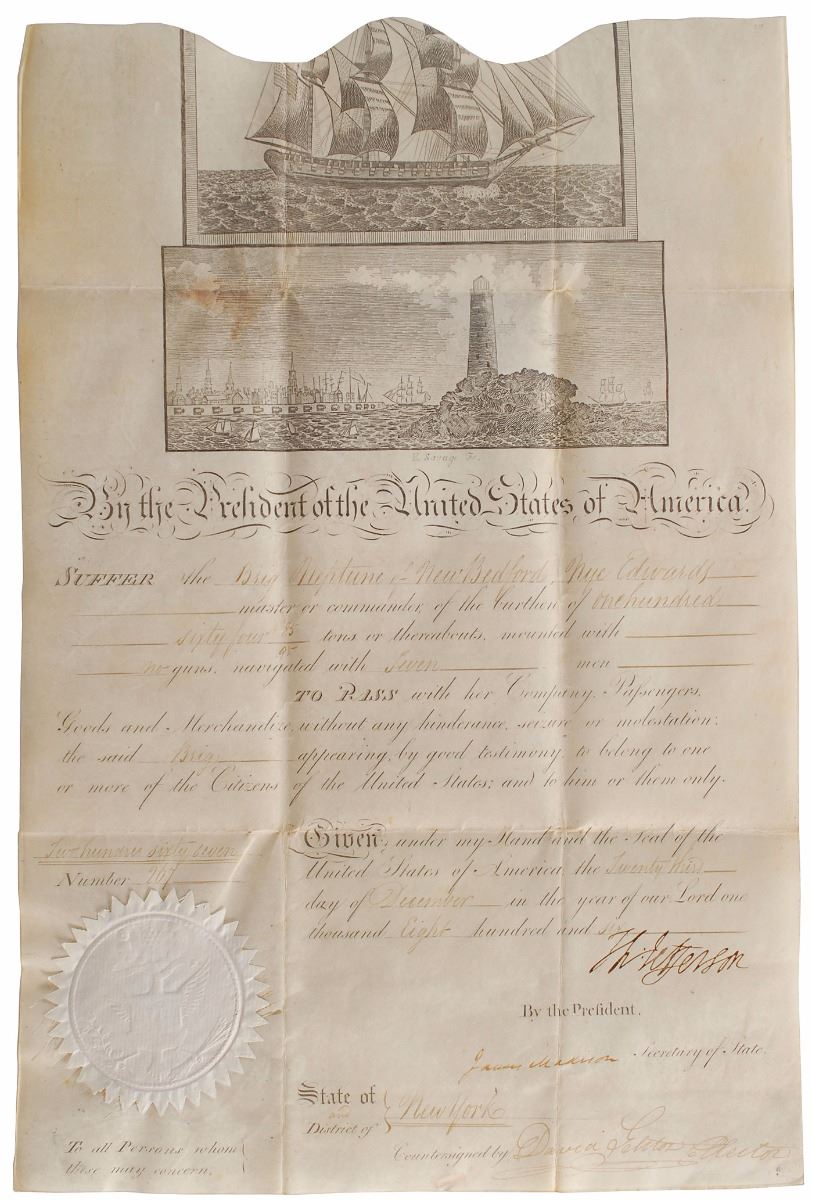 E. Savage Fc.
By the President of the United States of America.
SUFFER the Brig Neptune of New Bedford, Nye Edwards
master or commander, of the burthen of One hundred
sixty four 45/95 tons or thereabouts, mounted with
no guns, navigated with Seven men
TO PASS with her Company, Passengers,
Goods and Merchandize, without any hinderance, seizure or molestation;
the said Brig appearing, by good testimony, to belong to one
or more of the Citizens of the United States; and to him or them only.
Given, under my Hand and the Seal of the
United States of America, the Twenty third
day of December in the year of our Lord one
thousand Eight hundred and six
Two hundred sixty seven
Number 267
Th: Jefferson
By the President,
James Madison Secretary of State.
State of
and
District of
New York
Countersigned by David Gelston Collector
To all Persons whom
these may concern.